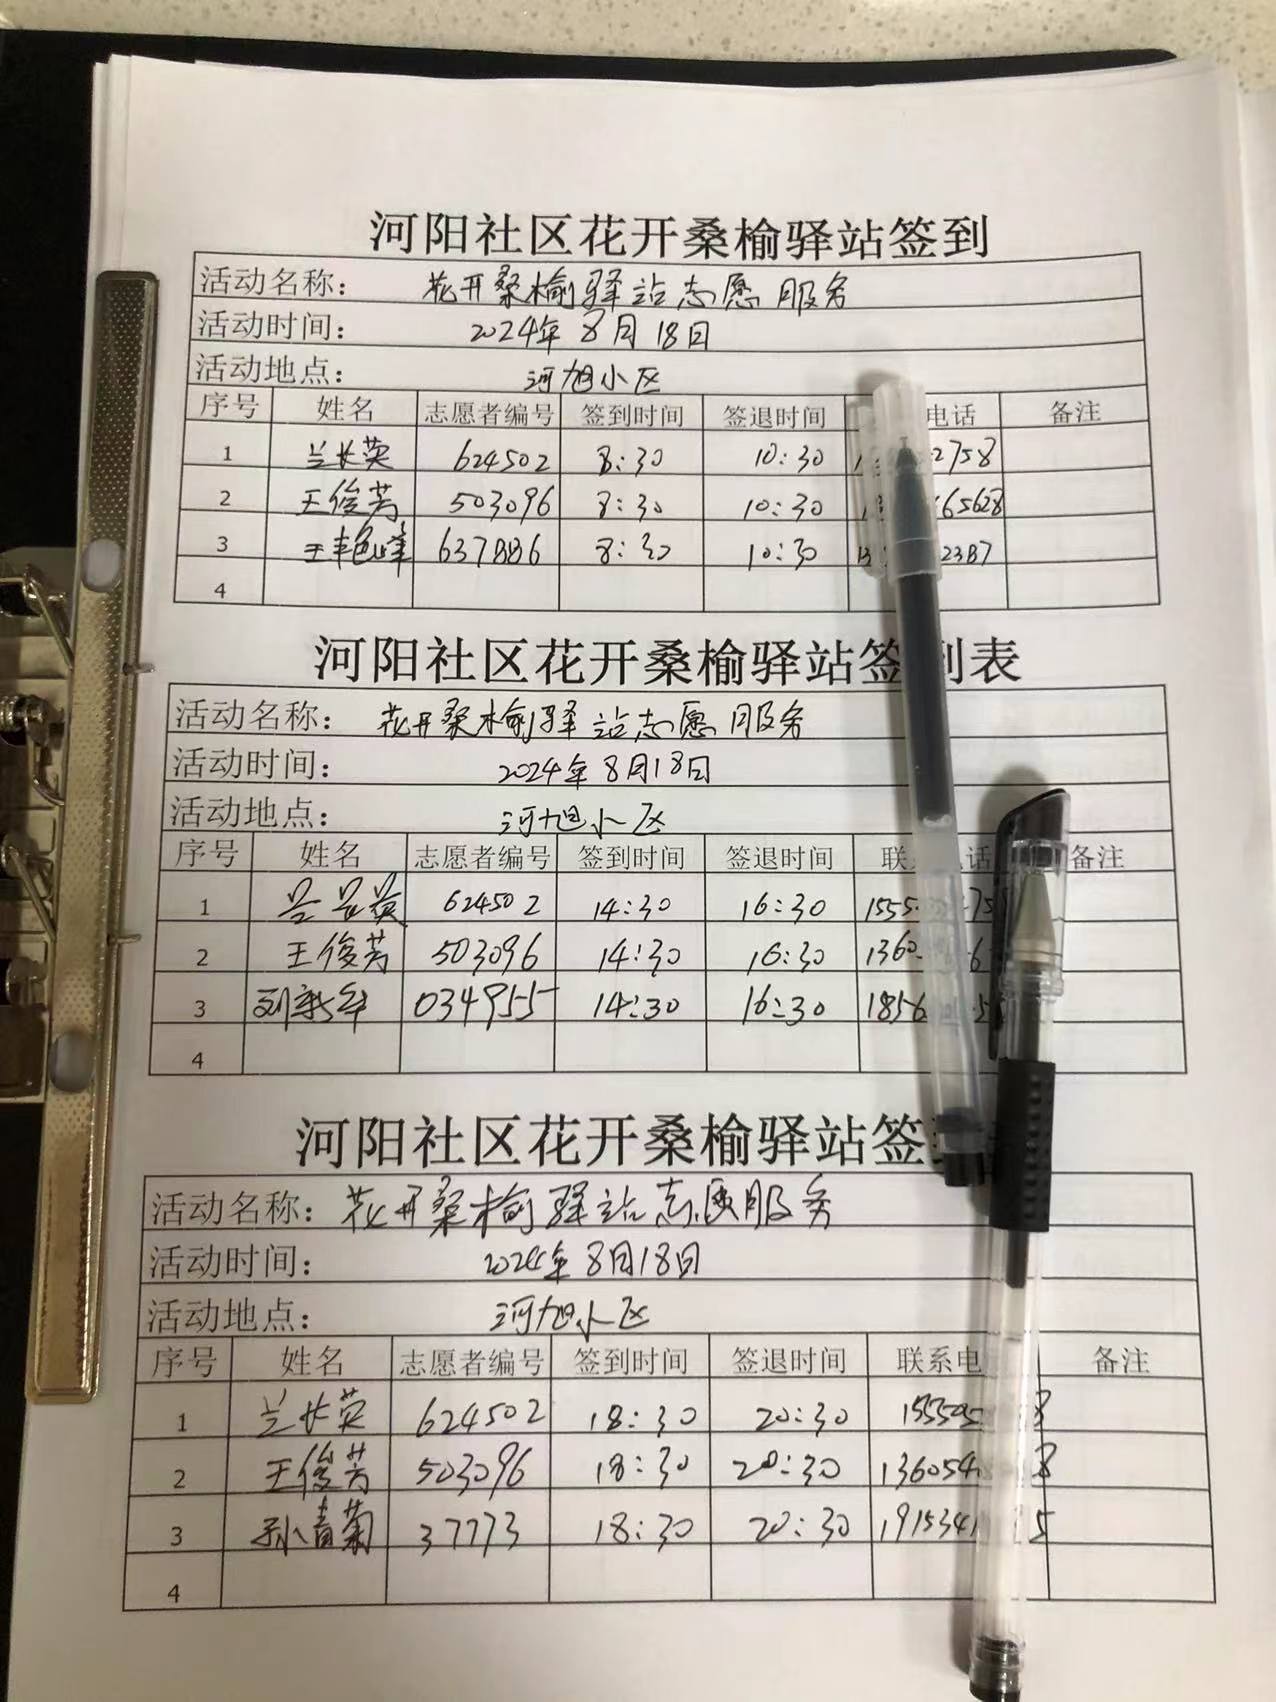 河阳社区花开桑榆驿站签到
活动名称： 花开桑榆驿站志愿服务
活动时间： 2024年8月18日
活动地点： 河旭小区
序号 姓名 志愿者编号 签到时间 签退时间 电话 备注
1 兰长英 624502 8:30 10:30 2758
2 王俊芳 503096 8:30 10:30 65628
3 王艳峰 637886 8:30 10:30 2387
4
河阳社区花开桑榆驿站签到表
活动名称： 花开桑榆驿站志愿服务
活动时间： 2024年8月18日
活动地点： 河旭小区
序号 姓名 志愿者编号 签到时间 签退时间 联系电话 备注
1 624502 14:30 16:30 1555
2 王俊芳 503096 14:30 16:30 1360
3 刘新年 034955 14:30 16:30 1856
4
河阳社区花开桑榆驿站签
活动名称： 花开桑榆驿站志愿服务
活动时间： 2024年8月18日
活动地点： 河旭小区
序号 姓名 志愿者编号 签到时间 签退时间 联系电 备注
1 兰长英 624502 18:30 20:30 155505 8
2 王俊芳 503096 18:30 20:30 136054 8
3 孙青菊 37773 18:30 20:30 1915341 5
4